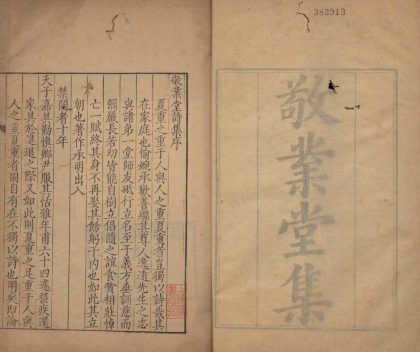 382913
敬業堂集
敬業堂詩集序
夏重之重于人與人之重夏重者豈獨以詩哉其
在家庭也愉婉承歡善繼其尊人逸遠先生之志
與諸弟一堂師友砥行立名至于義方垂訓慈而
彌嚴長若幼皆能自樹立倡隨之誼食貧相莊悼
亡一賦終其身不再娶其飭躬于內也如此其立
朝也著作承明出入
禁闥者十年
天子嘉其勤慎卿尹服其恬雅年甫六十四遽移疾還
家其於進退之際又如此則夏重之足重于人與
人之重夏重者固自有在不獨以詩也明矣即論